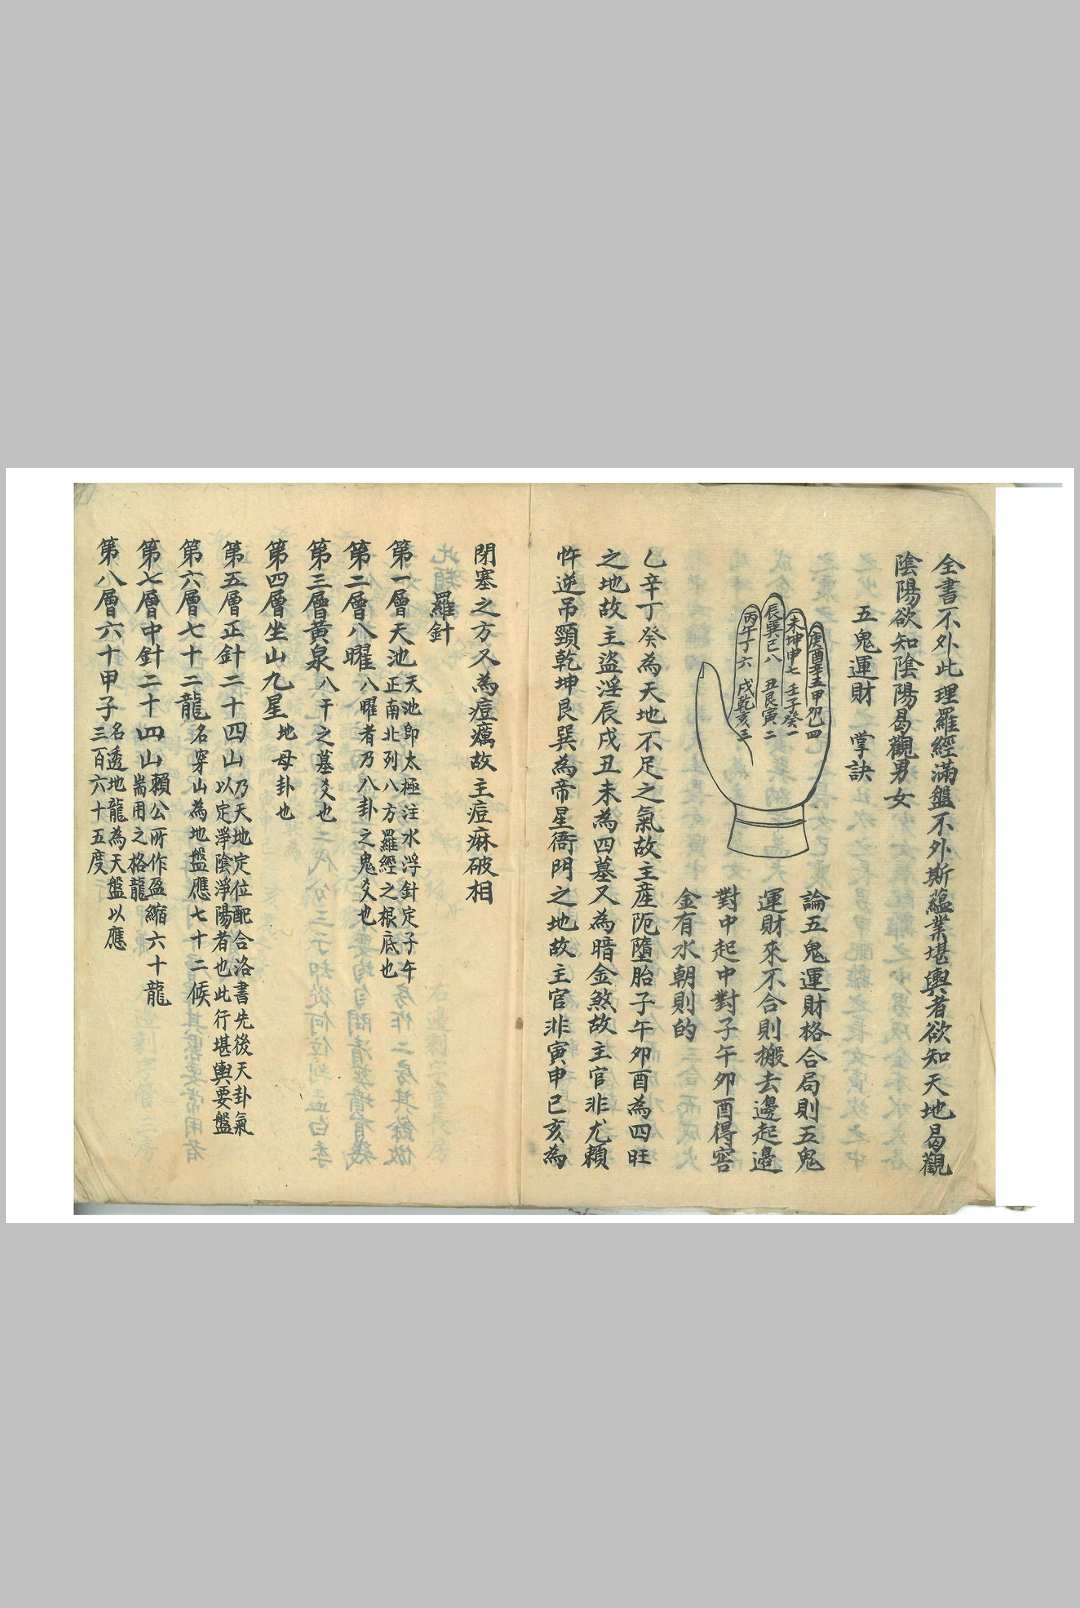 全書不外此理羅經滿盤不外斯蘊業堪輿者欲知天地曷觀
陰陽欲知陰陽曷觀男女
五鬼運財 掌訣
庚酉辛五 甲卯乙四
未坤申七 壬子癸一
辰巽巳八 丑艮寅二
丙午丁六 戌乾亥三
論五鬼運財格合局則五鬼
運財來不合則搬去邊起邊
對中起中對子午卯酉得窖
金有水朝則的
乙辛丁癸為天地不足之氣故主產阨墮胎子午卯酉為四旺
之地故主盜淫辰戌丑未為四墓又為暗金煞故主官非尤賴
忤逆吊頸乾坤艮巽為帝星衙門之地故主官非寅申巳亥為
閉塞之方又為痘癘故主痘麻破相
羅針
第一層天池天池即太極注水浮針定子午
正南北列八方羅經之根底也
第二層八曜八曜者乃八卦之鬼爻也
第三層黃泉八干之墓爻也
第四層坐山九星地母卦也
第五層正針二十四山乃天地定位配合洛書先後天卦氣
以定淨陰淨陽者也此行堪輿要盤
第六層七十二龍名穿山為地盤應七十二候
第七層中針二十四山賴公所作盈縮六十龍
耑用之格龍
第八層六十甲子名透地龍為天盤以應
三百六十五度